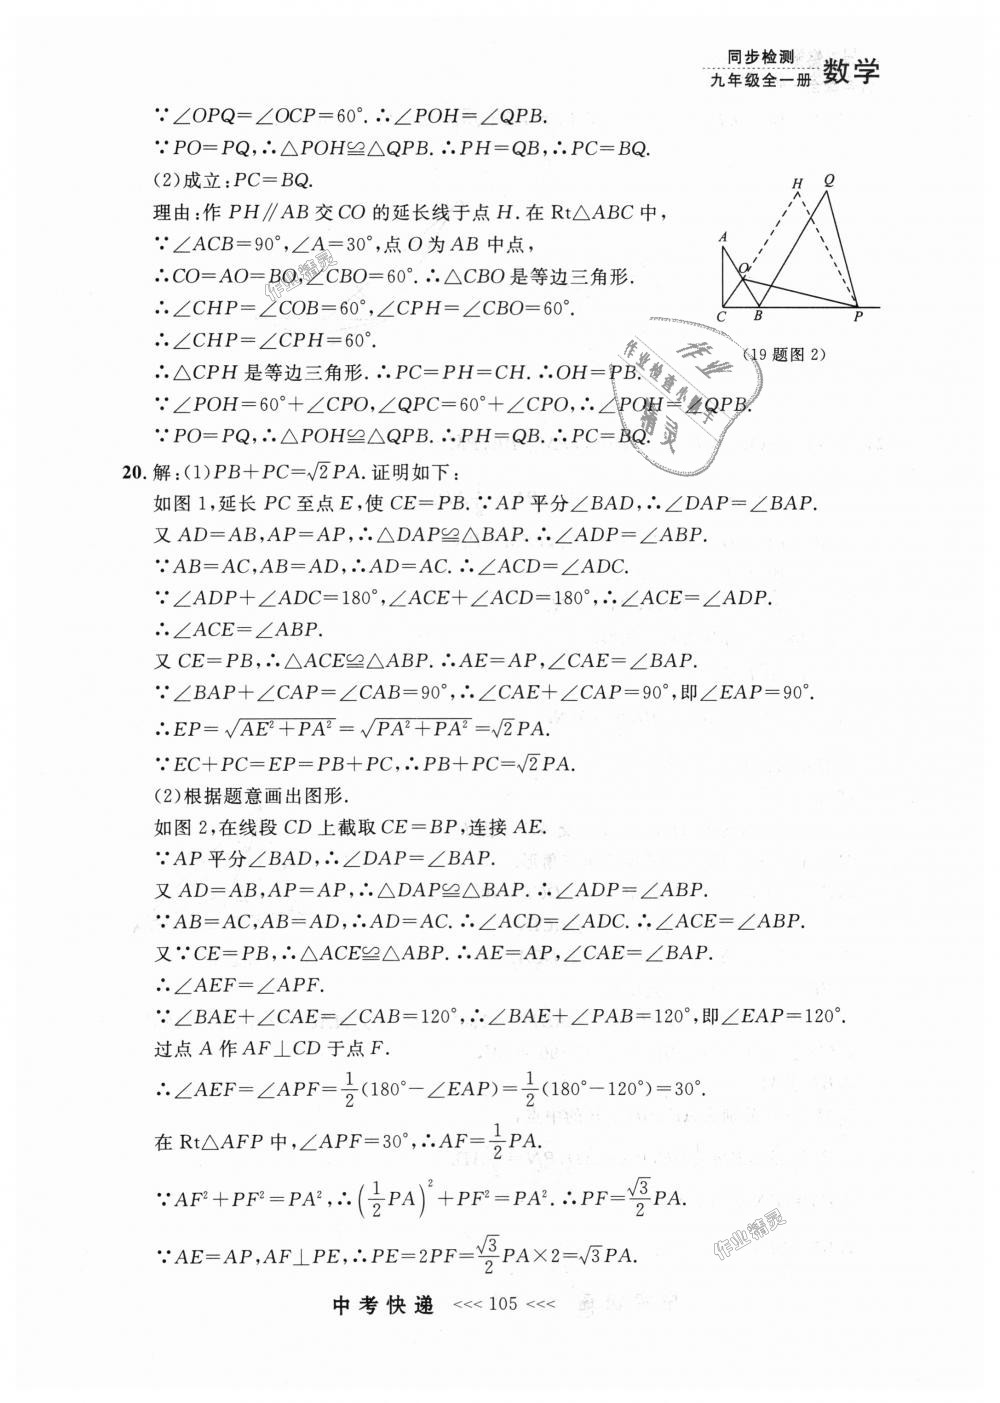 同步检测
九年级全一册 数学
∵∠OPQ=∠OCP=60°.∴∠POH=∠QPB.
∵PO=PQ,∴△POH≌△QPB.∴PH=QB,∴PC=BQ.
(2)成立:PC=BQ.
理由:作 PH∥AB 交 CO 的延长线于点 H.在 Rt△ABC 中,
∵∠ACB=90°,∠A=30°,点 O 为 AB 中点,
∴CO=AO=BO,∠CBO=60°.∴△CBO 是等边三角形.
∴∠CHP=∠COB=60°,∠CPH=∠CBO=60°.
∴∠CHP=∠CPH=60°.
∴△CPH 是等边三角形.∴PC=PH=CH.∴OH=PB.
∵∠POH=60°+∠CPO,∠QPC=60°+∠CPO,∴∠POH=∠QPB.
∵PO=PQ,∴△POH≌△QPB.∴PH=QB.∴PC=BQ.
H Q
A
O
C B P
(19 题图 2)
20. 解:(1)PB+PC=√2PA.证明如下:
如图 1,延长 PC 至点 E,使 CE=PB.∵AP 平分∠BAD,∴∠DAP=∠BAP.
又 AD=AB,AP=AP,∴△DAP≌△BAP.∴∠ADP=∠ABP.
∵AB=AC,AB=AD,∴AD=AC.∴∠ACD=∠ADC.
∵∠ADP+∠ADC=180°,∠ACE+∠ACD=180°,∴∠ACE=∠ADP.
∴∠ACE=∠ABP.
又 CE=PB,∴△ACE≌△ABP.∴AE=AP,∠CAE=∠BAP.
∵∠BAP+∠CAP=∠CAB=90°,∴∠CAE+∠CAP=90°,即∠EAP=90°.
∴EP=√(AE²+PA²)=√(PA²+PA²)=√2PA.
∵EC+PC=EP=PB+PC,∴PB+PC=√2PA.
(2)根据题意画出图形.
如图 2,在线段 CD 上截取 CE=BP,连接 AE.
∵AP 平分∠BAD,∴∠DAP=∠BAP.
又 AD=AB,AP=AP,∴△DAP≌△BAP.∴∠ADP=∠ABP.
∵AB=AC,AB=AD,∴AD=AC.∴∠ACD=∠ADC.∴∠ACE=∠ABP.
又∵CE=PB,∴△ACE≌△ABP.∴AE=AP,∠CAE=∠BAP.
∴∠AEF=∠APF.
∵∠BAE+∠CAE=∠CAB=120°,∴∠BAE+∠PAB=120°,即∠EAP=120°.
过点 A 作 AF⊥CD 于点 F.
∴∠AEF=∠APF=1/2(180°-∠EAP)=1/2(180°-120°)=30°.
在 Rt△AFP 中,∠APF=30°,∴AF=1/2PA.
∵AF²+PF²=PA²,∴(1/2PA)²+PF²=PA².∴PF=√3/2PA.
∵AE=AP,AF⊥PE,∴PE=2PF=√3/2PA×2=√3PA.
中考快递 <<< 105 <<<
作业精灵
作业检查小助手
作业精灵
作业精灵